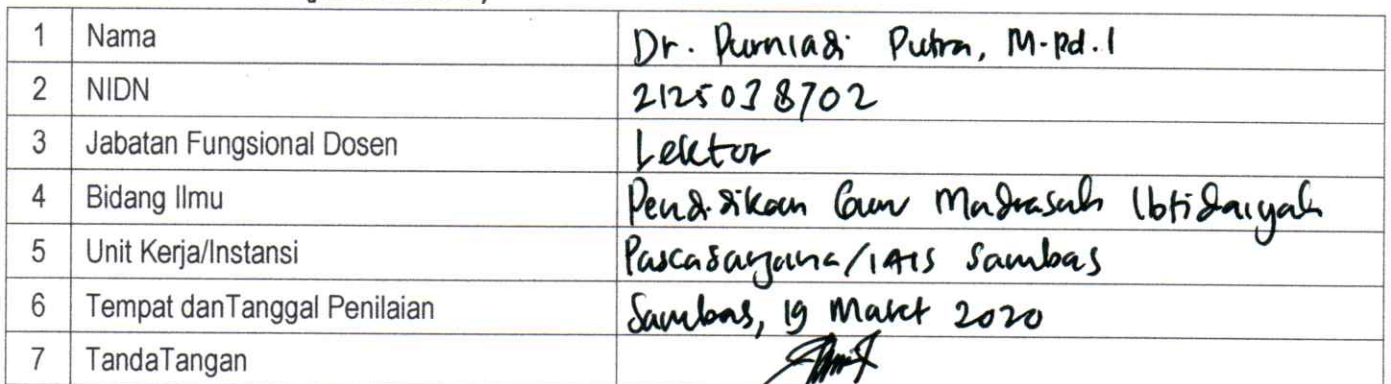 1 Nama Dr. Purniadi Putra, M.Pd.I
2 NIDN 2125038702
3 Jabatan Fungsional Dosen Lektor
4 Bidang Ilmu Pendidikan Guru Madrasah Ibtidaiyah
5 Unit Kerja/Instansi Pascasarjana/IAIS Sambas
6 Tempat danTanggal Penilaian Sambas, 19 Maret 2020
7 TandaTangan